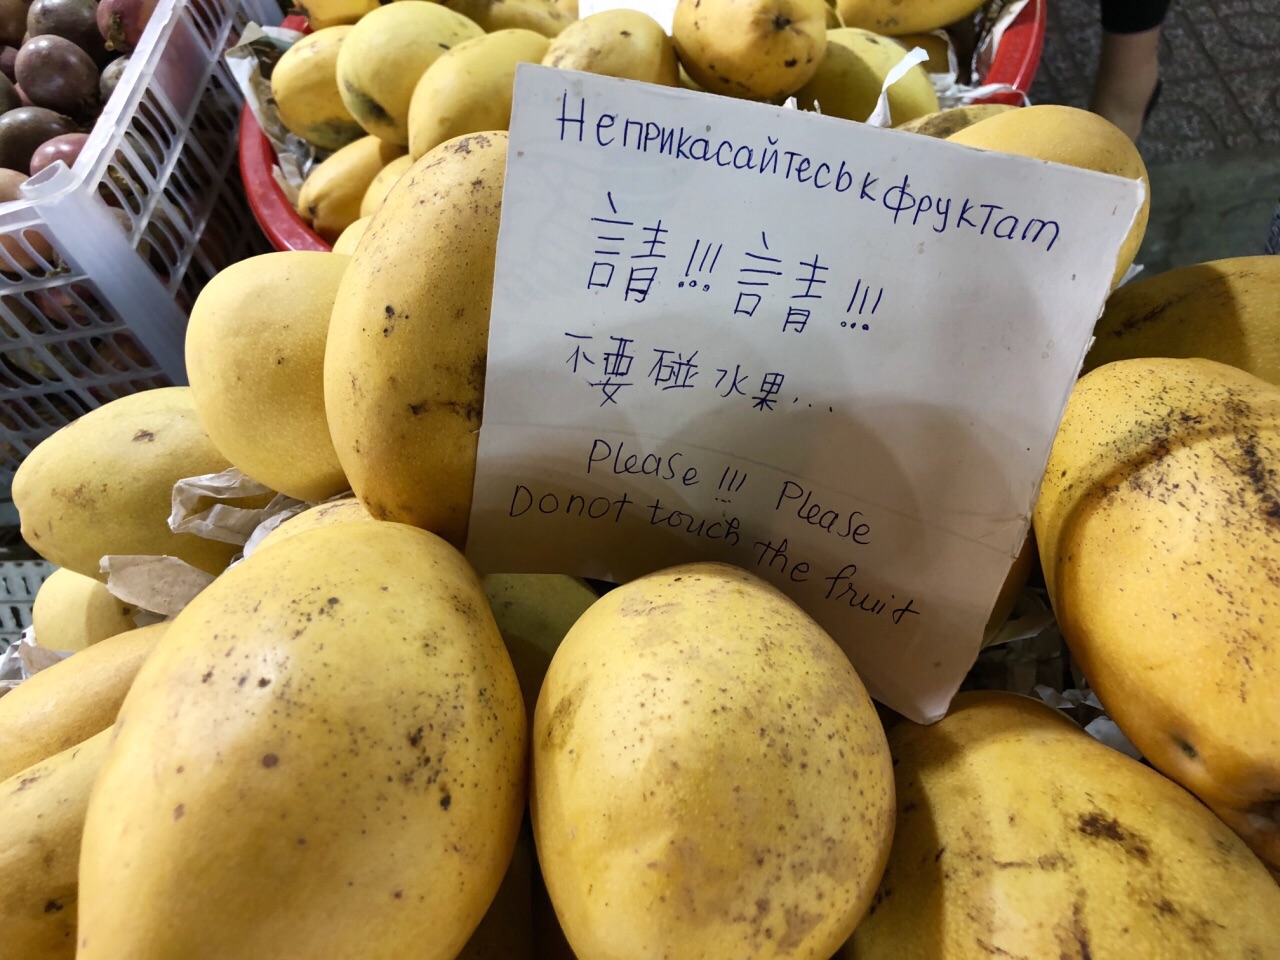 Неприкасайтесь к фруктам
請!!! 請!!!
不要碰水果...
Please !!! Please
Donot touch the fruit